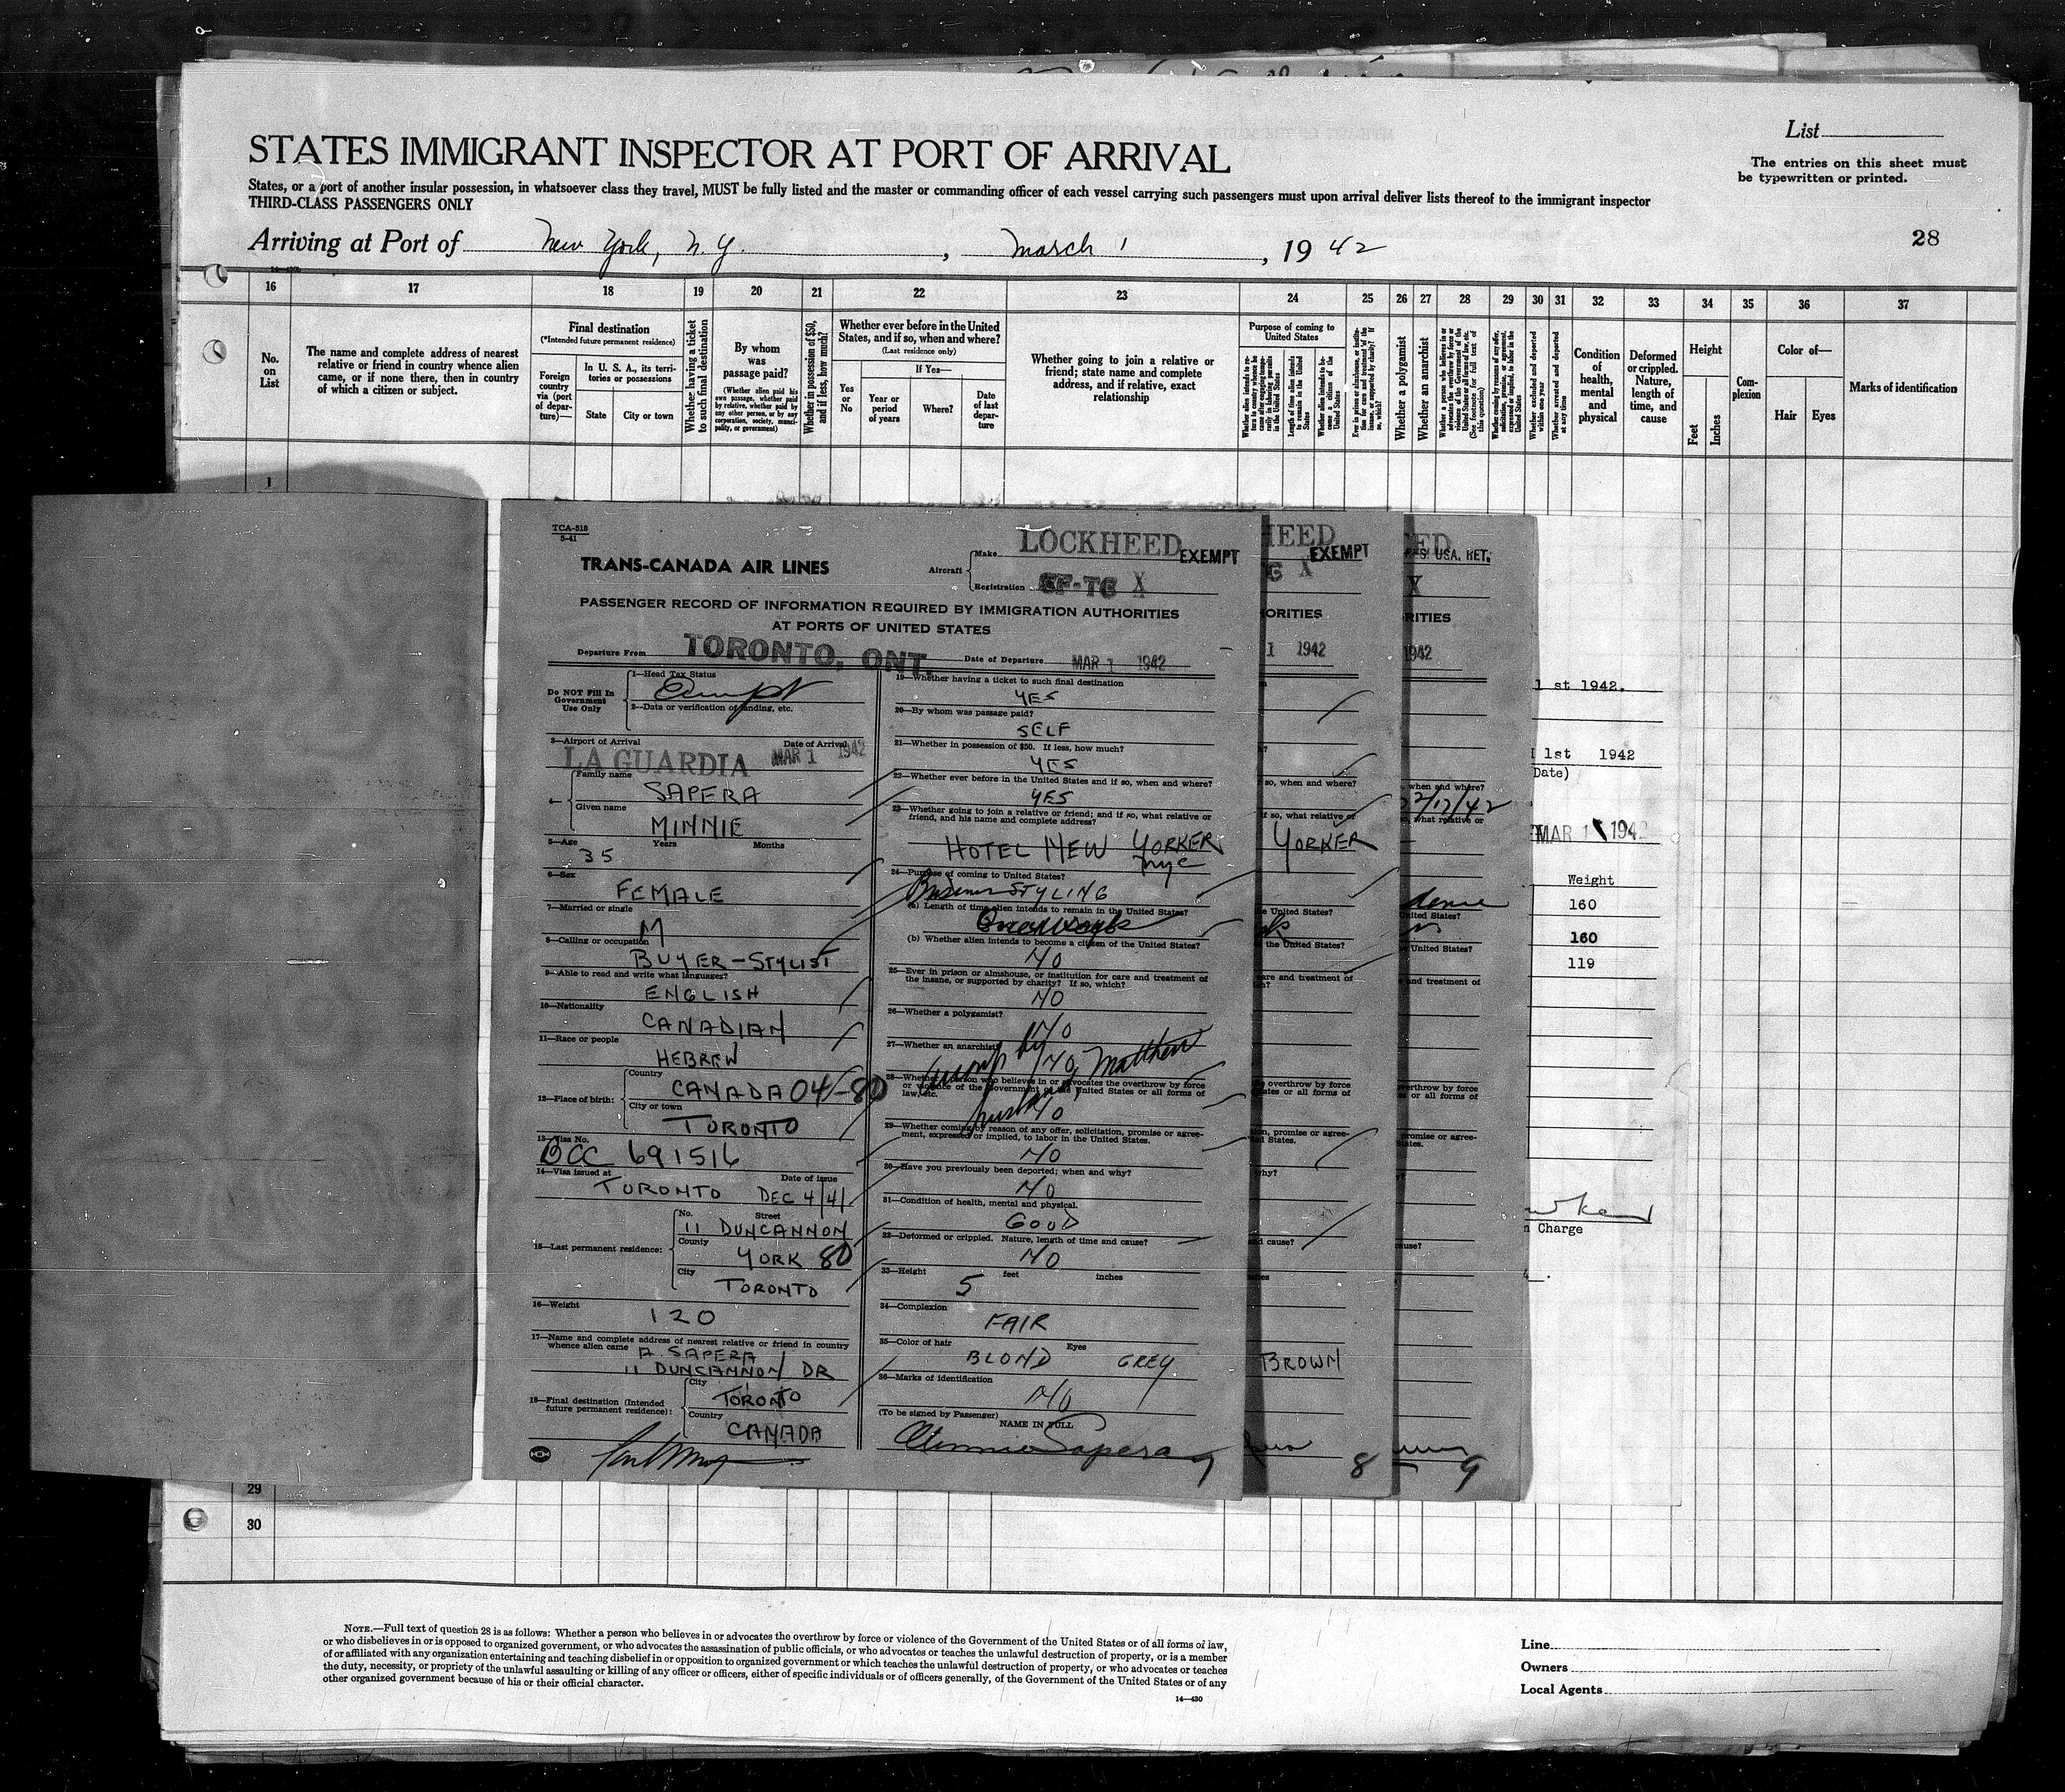 List
STATES IMMIGRANT INSPECTOR AT PORT OF ARRIVAL
The entries on this sheet must
be typewritten or printed.
States, or a port of another insular possession, in whatsoever class they travel, MUST be fully listed and the master or commanding officer of each vessel carrying such passengers must upon arrival deliver lists thereof to the immigrant inspector
THIRD-CLASS PASSENGERS ONLY
Arriving at Port of New York, N.Y., March 1, 1942
28
16 17 18 19 20 21 22 23 24 25 26 27 28 29 30 31 32 33 34 35 36 37
No. on List
The name and complete address of nearest
relative or friend in country whence alien
came, or if none there, then in country
of which a citizen or subject.
Final destination
(*Intended future permanent residence)
Foreign country via (port of departure)—
In U. S. A., its territories or possessions
State
City or town
Whether having a ticket to such final destination
By whom was passage paid?
(Whether alien paid his own passage, whether paid by relative, whether paid by any other person, or by any corporation, society, municipality, or government)
Whether in possession of $50, and if less, how much?
Whether ever before in the United
States, and if so, when and where?
(Last residence only)
Yes or No
If Yes—
Year or period of years
Where?
Date of last departure
Whether going to join a relative or
friend; state name and complete
address, and if relative, exact
relationship
Purpose of coming to
United States
Length of time alien intends to remain in the United States
Whether alien intends to become a citizen of the United States
Whether a polygamist
Whether an anarchist
Condition of health, mental and physical
Deformed or crippled. Nature, length of time, and cause
Height
Feet
Inches
Complexion
Color of—
Hair
Eyes
Marks of identification
1
TCA-518
5-41
TRANS-CANADA AIR LINES
Aircraft
Make LOCKHEED EXEMPT
Registration CF-TC X
PASSENGER RECORD OF INFORMATION REQUIRED BY IMMIGRATION AUTHORITIES
AT PORTS OF UNITED STATES
Departure From TORONTO, ONT. Date of Departure MAR 1 1942
Do NOT Fill In Government Use Only
1—Head Tax Status
Exempt
2—Data or verification of landing, etc.
3—Airport of Arrival Date of Arrival
LA GUARDIA MAR 1 1942
4— Family name
SAPERA
Given name
MINNIE
5—Age Years Months
35
6—Sex
FEMALE
7—Married or single
M
8—Calling or occupation
BUYER-STYLIST
9—Able to read and write what languages?
ENGLISH
10—Nationality
CANADIAN
11—Race or people
HEBREW
12—Place of birth:
Country
CANADA 04-80
City or town
TORONTO
13—Visa No.
BCC 691516
14—Visa issued at Date of issue
TORONTO DEC 4/41
15—Last permanent residence:
No. Street
11 DUNCANNON
County
YORK 80
City
TORONTO
16—Weight
120
17—Name and complete address of nearest relative or friend in country
whence alien came A. SAPERA
11 DUNCANNON DR
18—Final destination (Intended
future permanent residence):
City
TORONTO
Country
CANADA
19—Whether having a ticket to such final destination
YES
20—By whom was passage paid?
SELF
21—Whether in possession of $50. If less, how much?
YES
22—Whether ever before in the United States and if so, when and where?
YES
23—Whether going to join a relative or friend; and if so, what relative or
friend, and his name and complete address?
HOTEL NEW YORKER
nyc
24—Purpose of coming to United States?
Business STYLING
(a) Length of time alien intends to remain in the United States?
(b) Whether alien intends to become a citizen of the United States?
NO
25—Ever in prison or almshouse, or institution for care and treatment of
the insane, or supported by charity? If so, which?
NO
26—Whether a polygamist?
NO
27—Whether an anarchist
NO
accomp by husband, Matthew
28—Whether a person who believes in or advocates the overthrow by force
or violence of the Government of the United States or all forms of
law, etc.
NO
29—Whether coming by reason of any offer, solicitation, promise or agree-
ment, expressed or implied, to labor in the United States.
NO
30—Have you previously been deported; when and why?
NO
31—Condition of health, mental and physical.
GOOD
32—Deformed or crippled. Nature, length of time and cause?
NO
33—Height feet inches
5
34—Complexion
FAIR
35—Color of hair Eyes
BLOND GREY
36—Marks of identification
NO
(To be signed by Passenger)
NAME IN FULL
Minnie Sapera
HEED
EXEMPT
X
ORITIES
1 1942
so, when and where?
if so, what relative or
YORKER
e United States?
the United States?
care and treatment of
overthrow by force
ates or all forms of
on, promise or agree-
ed States.
why?
nd cause?
BROWN
8
USA, RET.
X
RITIES
1942
when and where?
22/12/42
so, what relative or
United States?
United States?
and treatment of
erthrow by force
or all forms of
promise or agree-
cause?
9
1 st 1942.
1st 1942
Date)
MAR 1 1942
Weight
160
160
119
n Charge
29
30
NOTE.—Full text of question 28 is as follows: Whether a person who believes in or advocates the overthrow by force or violence of the Government of the United States or of all forms of law,
or who disbelieves in or is opposed to organized government, or who advocates the assassination of public officials, or who advocates or teaches the unlawful destruction of property, or is a member
of or affiliated with any organization entertaining and teaching disbelief in or opposition to organized government or which teaches the unlawful destruction of property, or who advocates or teaches
the duty, necessity, or propriety of the unlawful assaulting or killing of any officer or officers, either of specific individuals or of officers generally, of the Government of the United States or of any
other organized government because of his or their official character.
14—430
Line
Owners
Local Agents